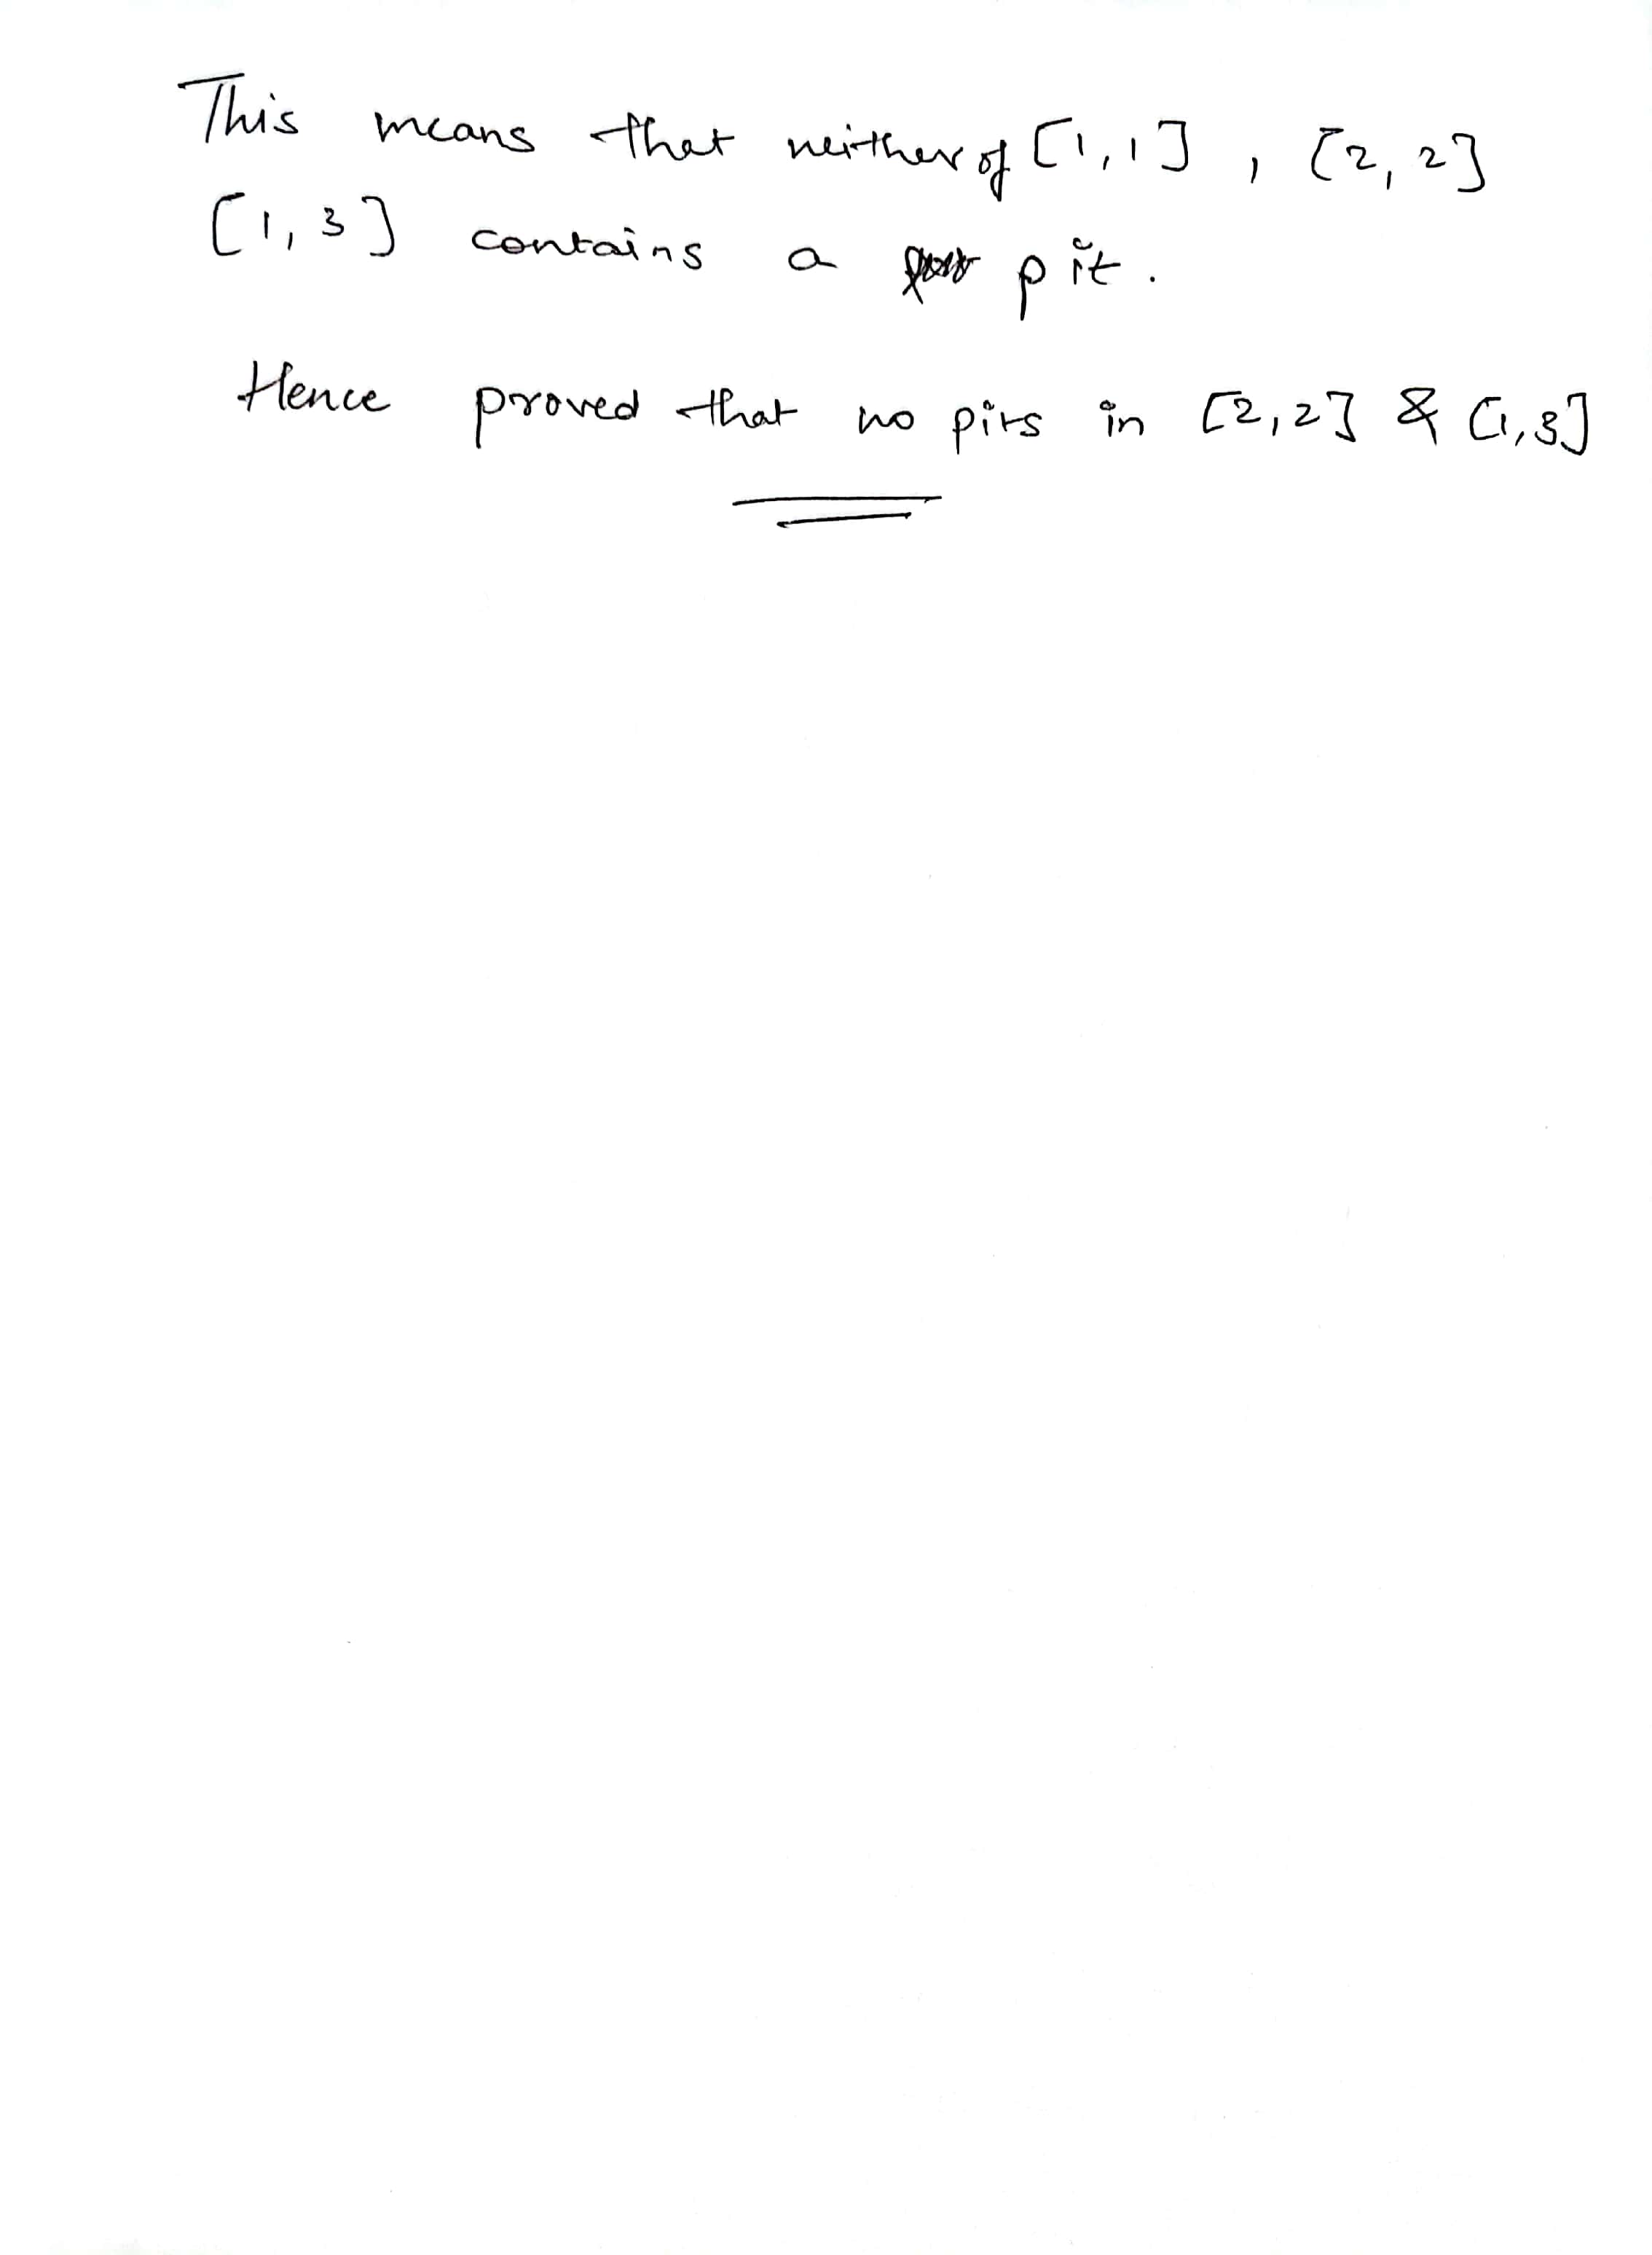 This means that neither of [1,1] , [2,2]
[1,3] contains a pit.
Hence proved that no pits in [2,2] & [1,3]